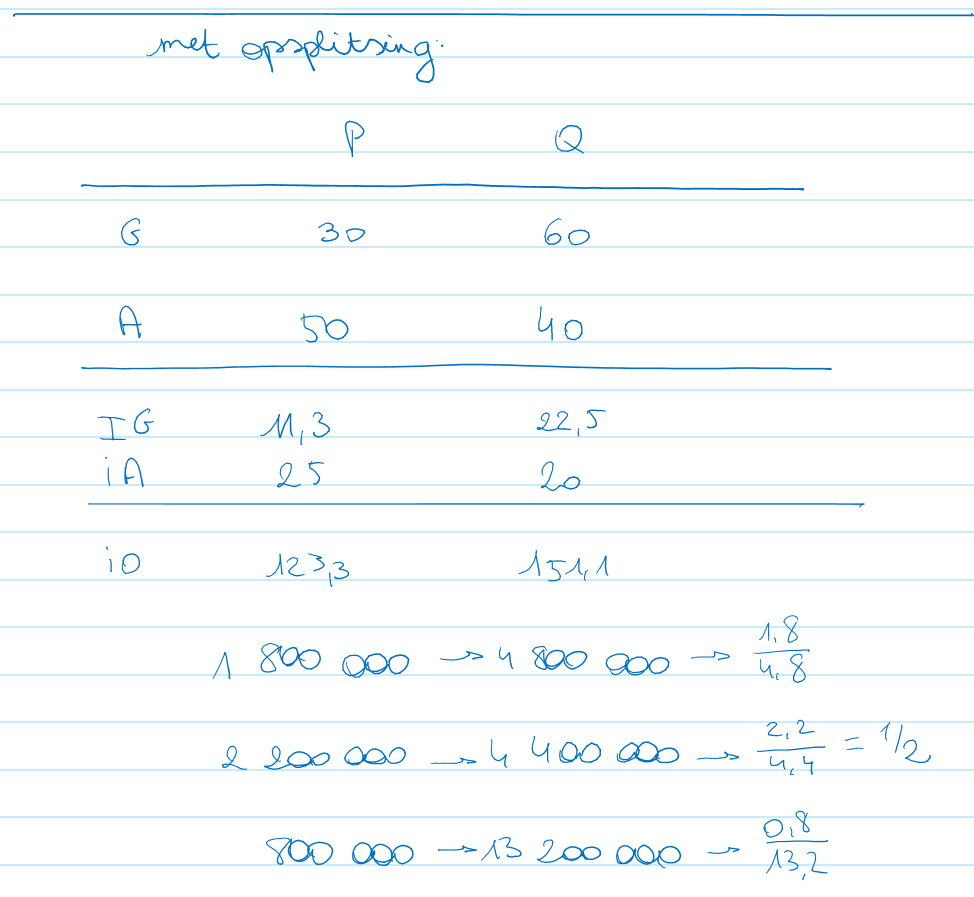 met opsplitsing:
P Q
G 30 60
A 50 40
IG 11,3 22,5
iA 25 20
iO 123,3 151,1
1 800 000 → 4 800 000 → 1,8/4,8
2 200 000 → 4 400 000 → 2,2/4,4 = 1/2
800 000 → 13 200 000 → 0,8/13,2